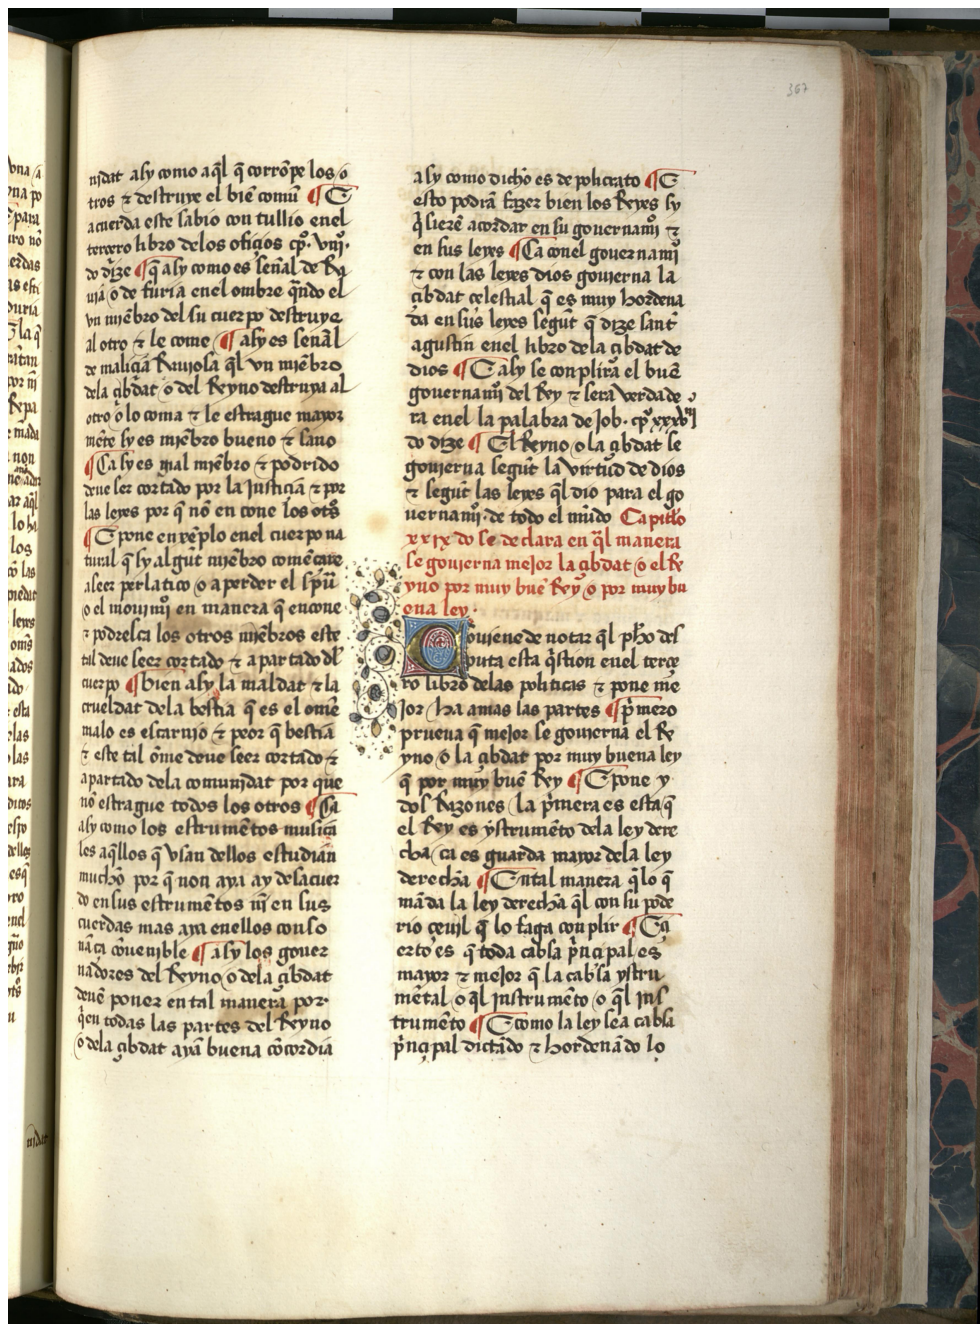 367
nidat asy como aq̃l q̃ corrõpe los o
tros ⁊ destruye el biẽ comũ ¶ E
acuerda este sabio con tullio enel
tercero libro delos oficios cp̃o. vii̊.
do dize ¶ q̃ asy como es señal de Ra
uia o de furia enel ombre q̃ndo el
vn miẽbro del su cuerpo destruye
al otro ⁊ le come ¶ asy es señal
de maliçia Rauiosa q̃l vn miẽbro
dela çibdat o del Reyno destruya al
otro o lo coma ⁊ le estrague mayor
mẽte sy es miẽbro bueno ⁊ sano
¶ Ca sy es mal miẽbro ⁊ podrido
deue ser cortado por la Justiçia ⁊ por
las leyes por q̃ nõ en cone los otõs
¶ E pone enxẽplo enel cuerpo na
tural q̃ sy algũt miẽbro comẽçare
a seer perlatico o a perder el sp̃ũ
o el mouimj̃ en manera q̃ encone
⁊ podresca los otros miẽbros este
tal deue seer cortado ⁊ apartado dl̃
cuerpo ¶ bien asy la maldat ⁊ la
crueldat dela bestia q̃ es el ome
malo es escarnio ⁊ peor q̃ bestia
⁊ este tal õme deue seer cortado ⁊
apartado dela comunidat por que
nõ estrague todos los otros ¶ Ca
asy como los estrumẽtos musica
les aq̃llos q̃ vsan dellos estudian
mucho por q̃ non aya ay desacuer
do en sus estrumẽtos nj̃ en sus
cuerdas mas aya enellos conso
nãçia cõvenible ¶ asy los gouer
nadores del Reyno o dela çibdat
deuẽ poner en tal manera por
q̃ en todas las partes del Reyno
o dela çibdat ayã buena cõcordia
asy como dicho es de policrato ¶ E
esto podriã fazer bien los Reyes sy
q̃sierẽ acordar en su gouernamj̃ ⁊
en sus leyes ¶ Ca conel gouernamj̃
⁊ con las leyes dios gouierna la
çibdat celestial q̃ es muy hordena
da en sus leyes segũt q̃ dize sant
agustin enel libro dela çibdat de
dios ¶ E asy se conplira el buẽ
gouernamj̃ del Rey ⁊ sera verdade
ra enel la palabra de Job. cp̃o
do dize ¶ El Reyno o la çibdat se
gouierna segũt la virtud de dios
⁊ segũt las leyes q̃l dio para el go
uernamj̃. de todo el mũdo Capitło
xxix do se declara en q̃l manera
se gouierna mejor la çibdat o el Re
yno por muy buẽ Rey o por muy bu
ena ley.
Conuiene de notar q̃l ph̃o dis
puta esta q̃stion enel terçe
ro libro delas politicas ⁊ pone me
Jor ha amas las partes ¶ p̃mero
prueua q̃ mejor se gouierna el Re
yno o la çibdat por muy buena ley
q̃ por muy buẽ Rey ¶ E pone y
dos Razones la p̃mera es esta q̃
el Rey es ystrumẽto dela ley dere
cha ca es guarda mayor dela ley
derecha ¶ En tal manera q̃ lo q̃
mãda la ley derecha q̃l con su pode
rio çeuil q̃ lo faga conplir ¶ Ca
çierto es q̃ toda cabsa p̃nçipal es
mayor ⁊ mejor q̃ la cabsa ystru
mẽtal o q̃l instrumẽto o q̃l ins
trumẽto ¶ E como la ley sea cabsa
p̃nçipal dictãdo ⁊ hordenãdo lo